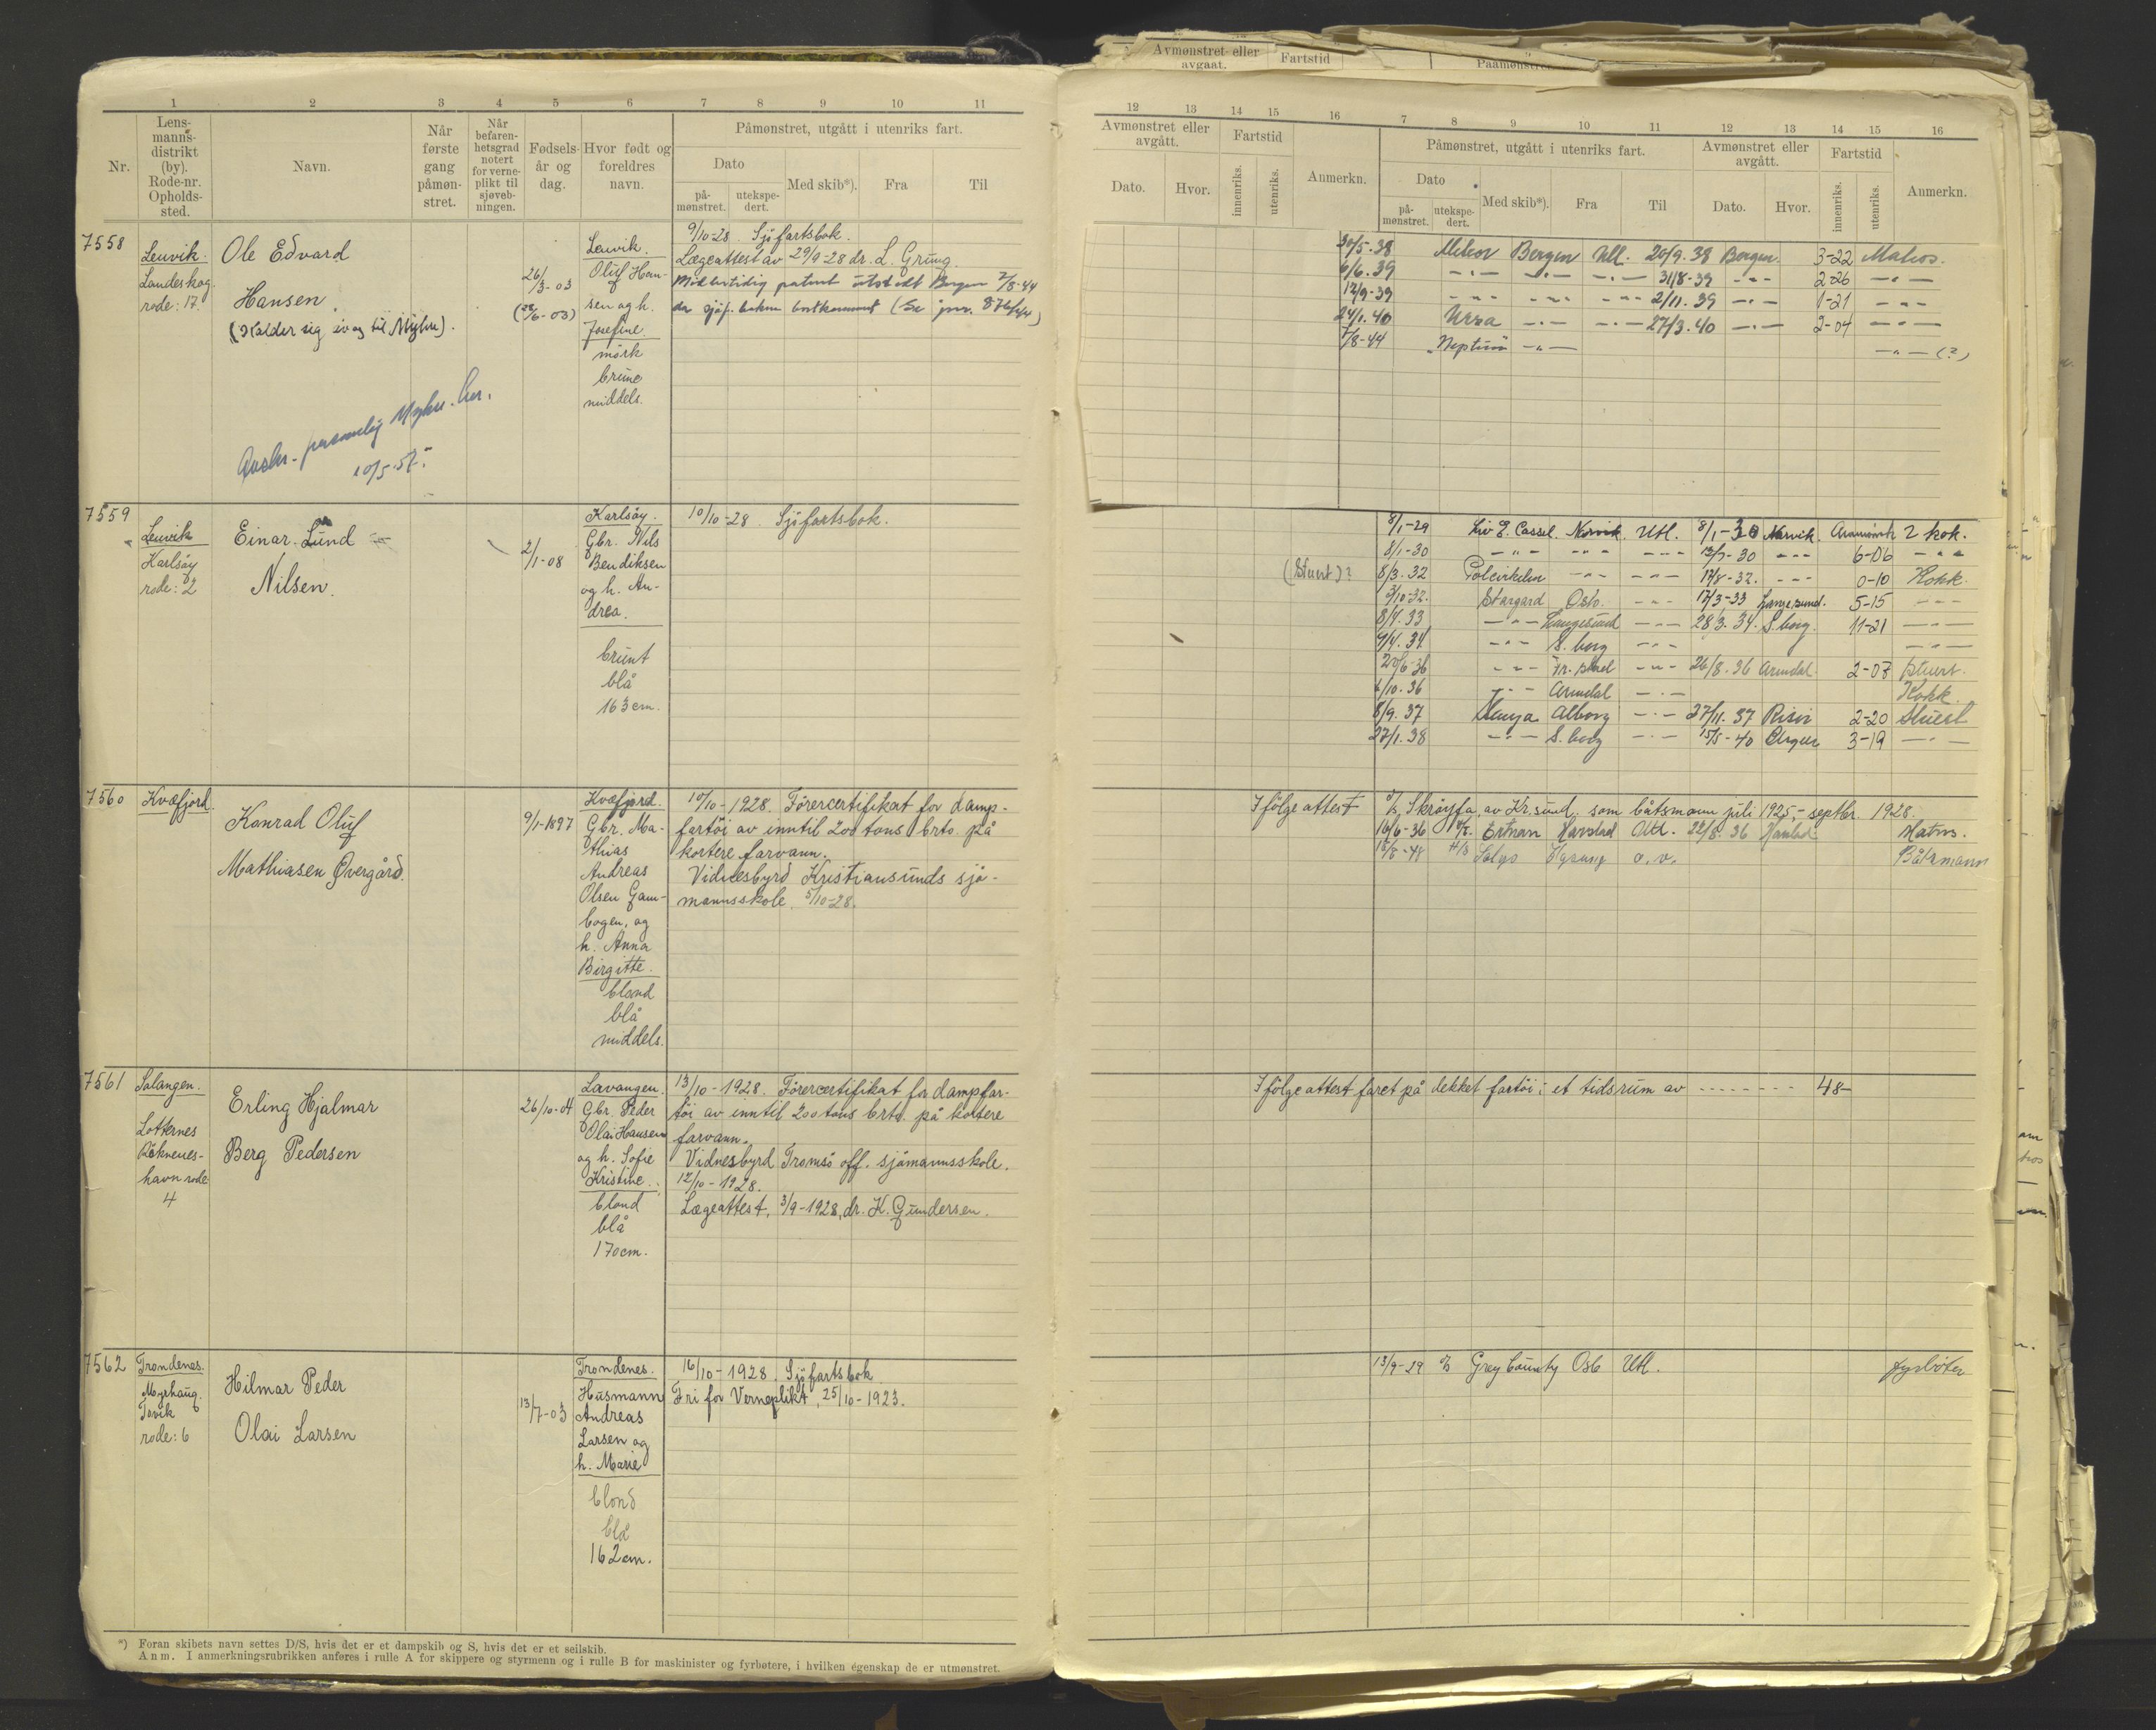 1 2 3 4 5 6 7 8 9 10 11
Nr.
Lens-
manns-
distrikt
(by).
Rode-nr.
Opholds-
sted.
Navn.
Når
første
gang
påmøn-
stret.
Når
befaren-
hetsgrad
notert
for verne-
plikt til
sjøveb-
ningen.
Fødsels-
år og
dag.
Hvor født og
foreldres
navn.
Påmønstret, utgått i utenriks fart.
Dato
på-
mønstret.
utekspe-
dert.
Med skib*).
Fra
Til
7558
Lenvik.
Landeskog.
rode: 17.
Ole Edvard
Hansen
(Kalder sig også til Myhre).
Avskr. personlig Myhre. Ber.
10/5-57.
26/3-03
(26/6-03)
Lenvik.
Oluf Han-
sen og h.
Josefine
mørk
brune
middels.
9/10-28. Sjöfartsbok.
Lægeattest av 29/9-28 dr. L. Grung.
Midlertidig patent utstedt Bergen 2/8-44
da sjöf. boken bortkommet (Se jnr. 876/44)
7559
Lenvik
Karlsøy
rode: 2
Einar Lund
Nilsen.
2/1-08
Karlsøy.
Gbr. Nils
Bendiksen
og h. An-
drea.
brunt
blå
163 cm.
10/10-28. Sjöfartsbok.
7560
Kvæfjord.
Konrad Oluf
Mathiasen Øvergård.
9/1-1897
Kvæfjord.
Gbr. Ma-
thias
Andreas
Olsen Gam-
bogen, og
h. Anna
Birgitte.
blond
blå
middels.
10/10-1928. Förercertifikat for damp-
fartöi av inntil 200 tons brto. på
kortere farvann.
Vidnesbyrd Kristiansunds sjö-
mannsskole. 5/10-28.
7561
Salangen.
Lotternes
Röknes-
havn rode
4
Erling Hjalmar
Berg Pedersen
26/10-04
Lavangen.
Gbr. Peder
Olai Hansen
og h. Sofie
Kristine.
blond
blå
170 cm.
13/10-1928. Förercertifikat for dampfar-
töi av inntil 200 tons brto. på kortere
farvann.
Vidnesbyrd Tromsö off. sjömannsskole.
12/10-1928.
Lægeattest, 3/9-1928, dr. K. Gundersen.
7562
Trondenes.
Myrhaug.
Tovik
rode: 6
Hilmar Peder
Olai Larsen
13/7-03
Trondenes.
Husmann
Andreas
Larsen og
h. Marie
blond
blå
162 cm.
16/10-1928. Sjöfartsbok
Fri for Verneplikt, 25/10-1923.
*) Foran skibets navn settes D/S, hvis det er et dampskib og S, hvis det er et seilskib.
Anm. I anmerkningsrubrikken anføres i rulle A for skippere og styrmenn og i rulle B for maskinister og fyrbøtere, i hvilken egenskap de er utmønstret.
Avmønstret eller
avgaat.
Fartstid
Paamønstret
12 13 14 15 16 7 8 9 10 11 12 13 14 15 16
Avmønstret eller
avgått.
Dato.
Hvor.
Fartstid
innenriks.
utenriks.
Anmerkn.
Påmønstret, utgått i utenriks fart.
Dato
på-
mønstret.
utekspe-
dert.
Med skib*).
Fra
Til
Avmønstret eller
avgått.
Dato.
Hvor.
Fartstid
innenriks.
utenriks.
Anmerkn.
30/5.38 Meteor Bergen Utl. 20/9.38 Bergen. 3-22 Matros.
6/6.39 -"- -"- -"- 31/8-39 -"- 2-26 -"-
12/9-39 -"- -"- -"- 2/11.39 -"- 1-21 -"-
24/1.40 Ursa -"- -"- 27/3.40 -"- 2-04 -"-
7/8-44 "Neptun" -"- -"- (?)
8/1-29 Liv E. Cassel Narvik Utl. 8/1-30 Narvik 2 kok.
8/1-30 -"- -"- -"- 13/7-30 -"- 6-06 -"-
(Stuert)? 8/3.32 Polcirkelen -"- -"- 17/8-32. -"- 0-10 Kokk.
3/10-32. Stargard Oslo. -"- 17/3-33 Langesund. 5-15 -"-
8/4.33 -"- Langesund -"- 28/3.34. S.borg. 11-21 -"-
9/4.34 -"- S.borg -"- -"-
20/6-36 -"- Fr.stad -"- 26/8.36 Arendal. 2-07 Stuert.
6/10.36 -"- Arendal -"- Kokk.
8/9.37 Senja Alborg -"- 27/11.37 Risör 2-20 Stuert
27/1.38 -"- S.borg -"- 15/5-40 Bergen 3-19 -"-
Ifölge attest D/S Skröyfa, av Kr.sund. som båtsmann juli 1925,- septbr. 1928.
16/6-36 Harstad Utl. 22/8.36 Harstad Matros.
15/8-48 a.v. Båtsmann
Ifölge attest faret på dekket fartöi i et tidsrum av -------- 48-
13/9-29 D/S Grey County Oslo Utl. fyrböter